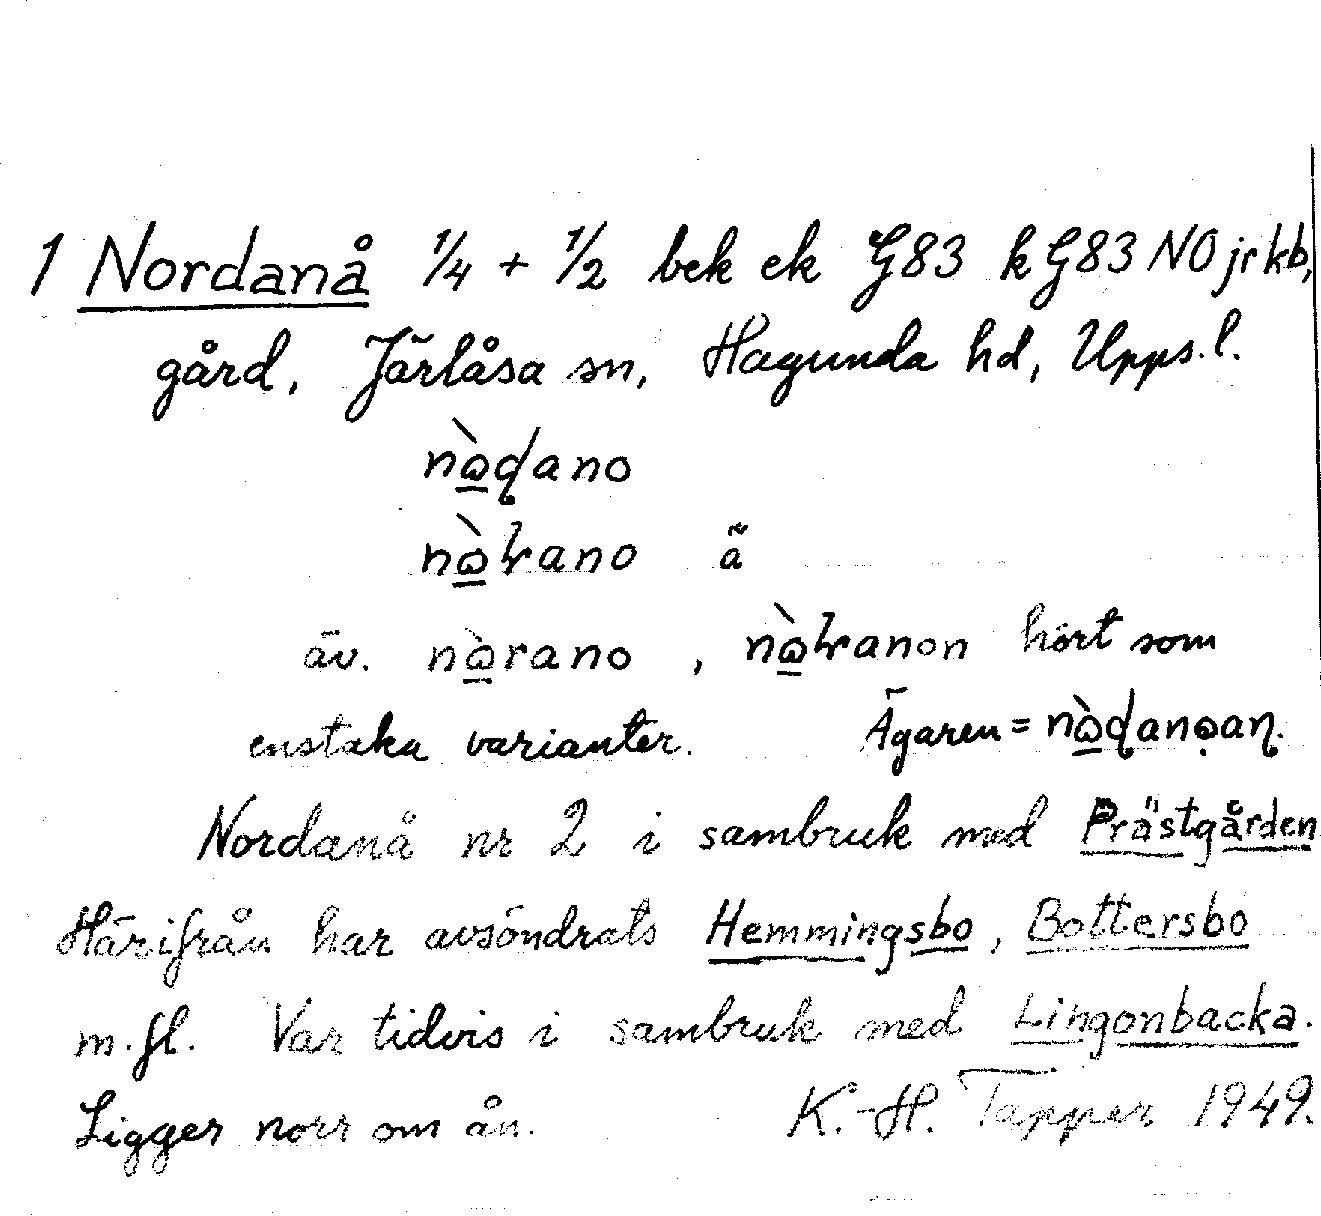 1 Nordanå 1/4 + 1/2 bek ek G83 k G83 NO jr kb,
gård, Järlåsa sn, Hagunda hd, Upps. l.
ä
äv. , hört som
enstaka varianter. Ägaren =
Nordanå nr 2 i sambruk med Prästgården
Härifrån har avsöndrats Hemmingsbo, Bottersbo
m.fl. Var tidvis i sambruk med Lingonbacka.
Ligger norr om ån. K.-H. Tapper 1949.